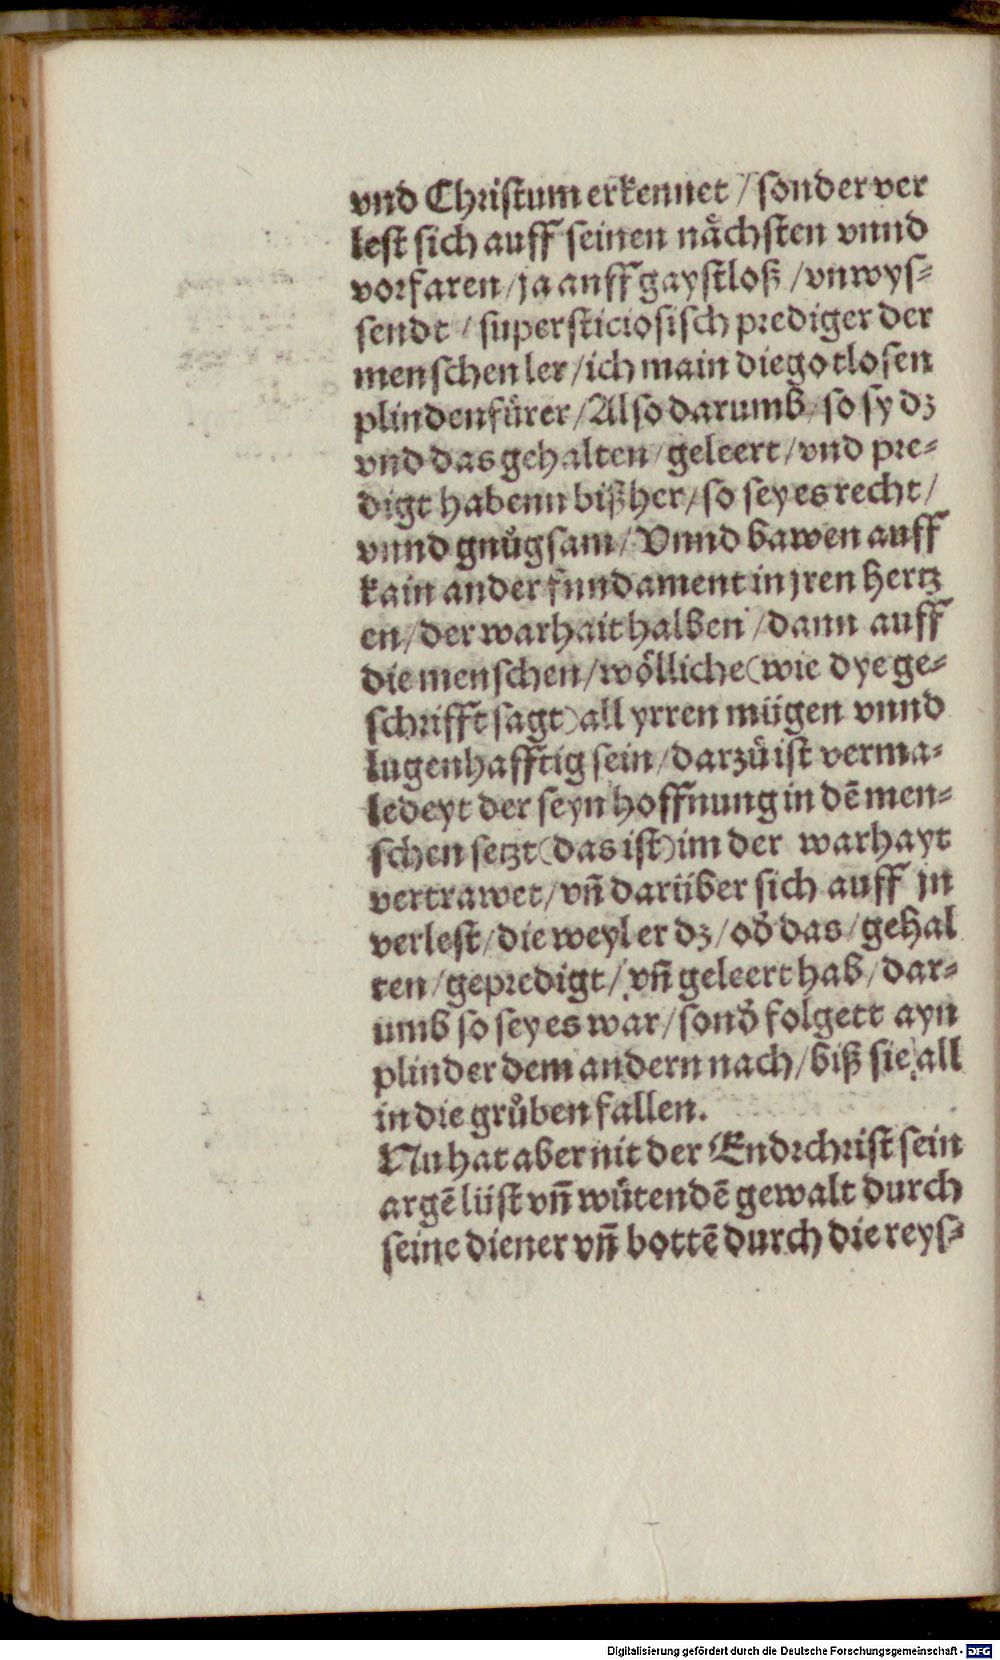 vnd Christum erkennet / sonder ver
lest sich auff seinen nåchsten vnnd
vorfaren / ja anff gaystloß / vnwys⸗
sendt / supersticiosisch prediger der
menschen ler / ich main die gotlosen
plindenfürer / Also darumb / so sy dz
vnd das gehalten / geleert / vnd pre⸗
digt habenn bißher / so sey es recht /
vnnd gnůgsam / Vnnd bawen auff
kain ander fundament in jren hertz
en / der warhait halben / dann auff
die menschen / wölliche (wie dye ge⸗
schrifft sagt) all yrren mügen vnnd
lugenhafftig sein / darzů ist verma⸗
ledeyt der seyn hoffnung in dē men⸗
schen setzt (das ist) im der warhayt
vertrawet / vn̄ darüber sich auff jn
verlest / die weyl er dz / od̕ das / gehal
ten / gepredigt / vn̄ geleert hab / dar⸗
umb so sey es war / sond̕ folgett ayn
plinder dem andern nach / biß sie all
in die grůben fallen.
Nu hat aber nit der Endrchrist sein
argē lüst vn̄ wütendē gewalt durch
seine diener vn̄ bottē durch die reys⸗
Digitalisierung gefördert durch die Deutsche Forschungsgemeinschaft - DFG